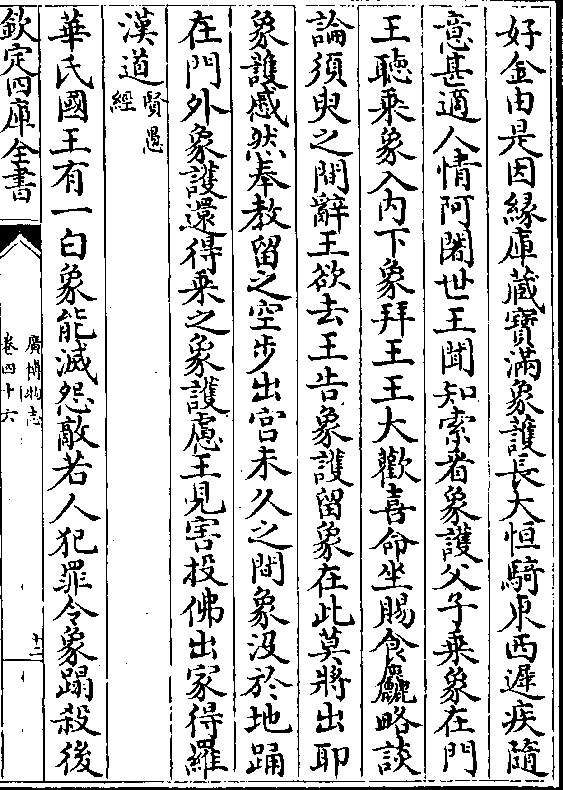 好金由是因緣庫藏寶滿象護長大恒騎東西遲疾隨
意甚適人情阿闍世王聞知索看象護父子乘象在門
王聽乘象入内下象拜王王大歡喜命坐賜食麤略談
論須臾之間辭王欲去王告象護留象在此莫將出耶
象護慼然奉教留之空步出宫未久之間象没於地踊
在門外象護還得乘之象護慮王見害投佛出家得羅
漢道賢愚
經
華氏國王有一白象能滅怨敵若人犯罪令象蹋殺後
欽定四庫全書
廣博物志
卷四十六
十二